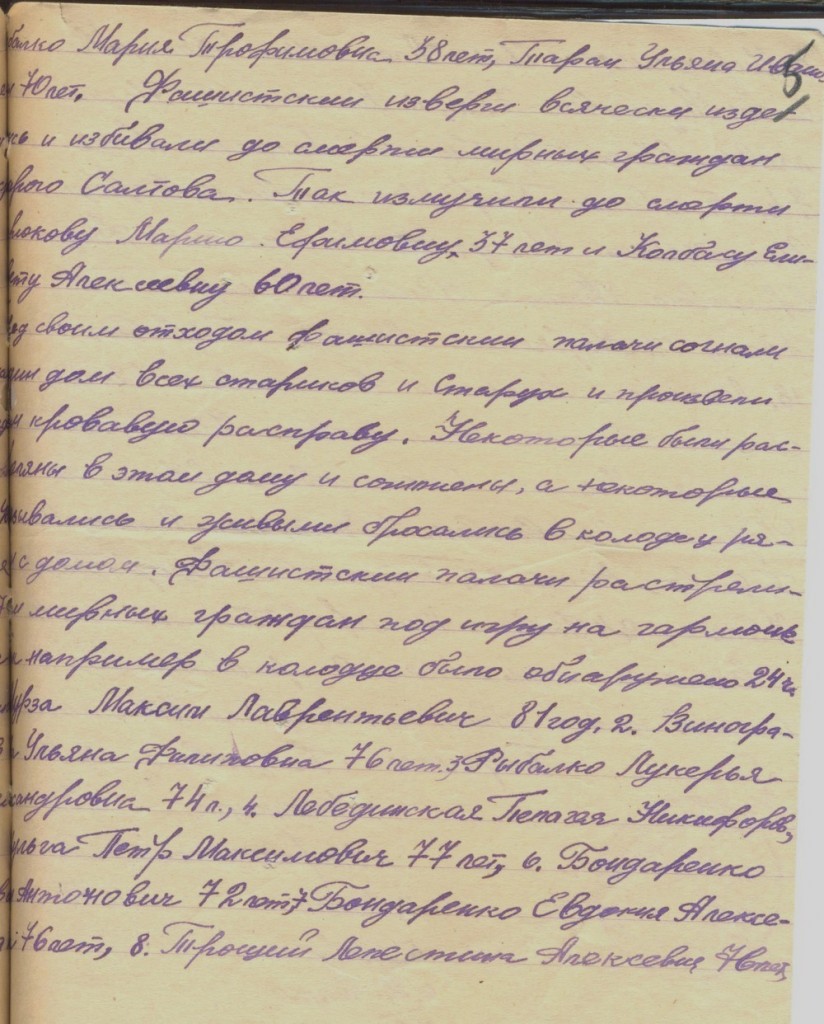 5
балко Мария Трофимовна 38 лет, Таран Ульяна Ивано-
70 лет. Фашистский изверги всячески изде-
сь и избивали до смерти мирных граждан
рого Салтова. Так измучили до смерти
Марию Ефимовну, 37 лет и Колбасу Ели-
ету Алексеевну 60 лет.
ед своим отходом фашистский палачи согнали
дин дом всех стариков и старух и произвели
кровавую расправу. Некоторые были рас-
в этом дому и сожжены, а некоторые
ывались и живыми бросались в колодец ря-
с домом. Фашистский палачи растрели-
мирных граждан под игру на гармошке
например в колодце было обнаружено 24 ч.
урза Максим Лаврентьевич 81 год. 2. Виногра-
Ульяна Филиповна 76 лет. 3 Рыбалко Лукерья
ксандровна 74 л., 4. Лебединская Пелагея Никифоров,
ульга Петр Максимович 77 лет, 6. Бондаренко
Антонович 72 лет, 7 Бондаренко Евдокия Алексе-
76 лет, 8. Троций Алексевич 76 лет,